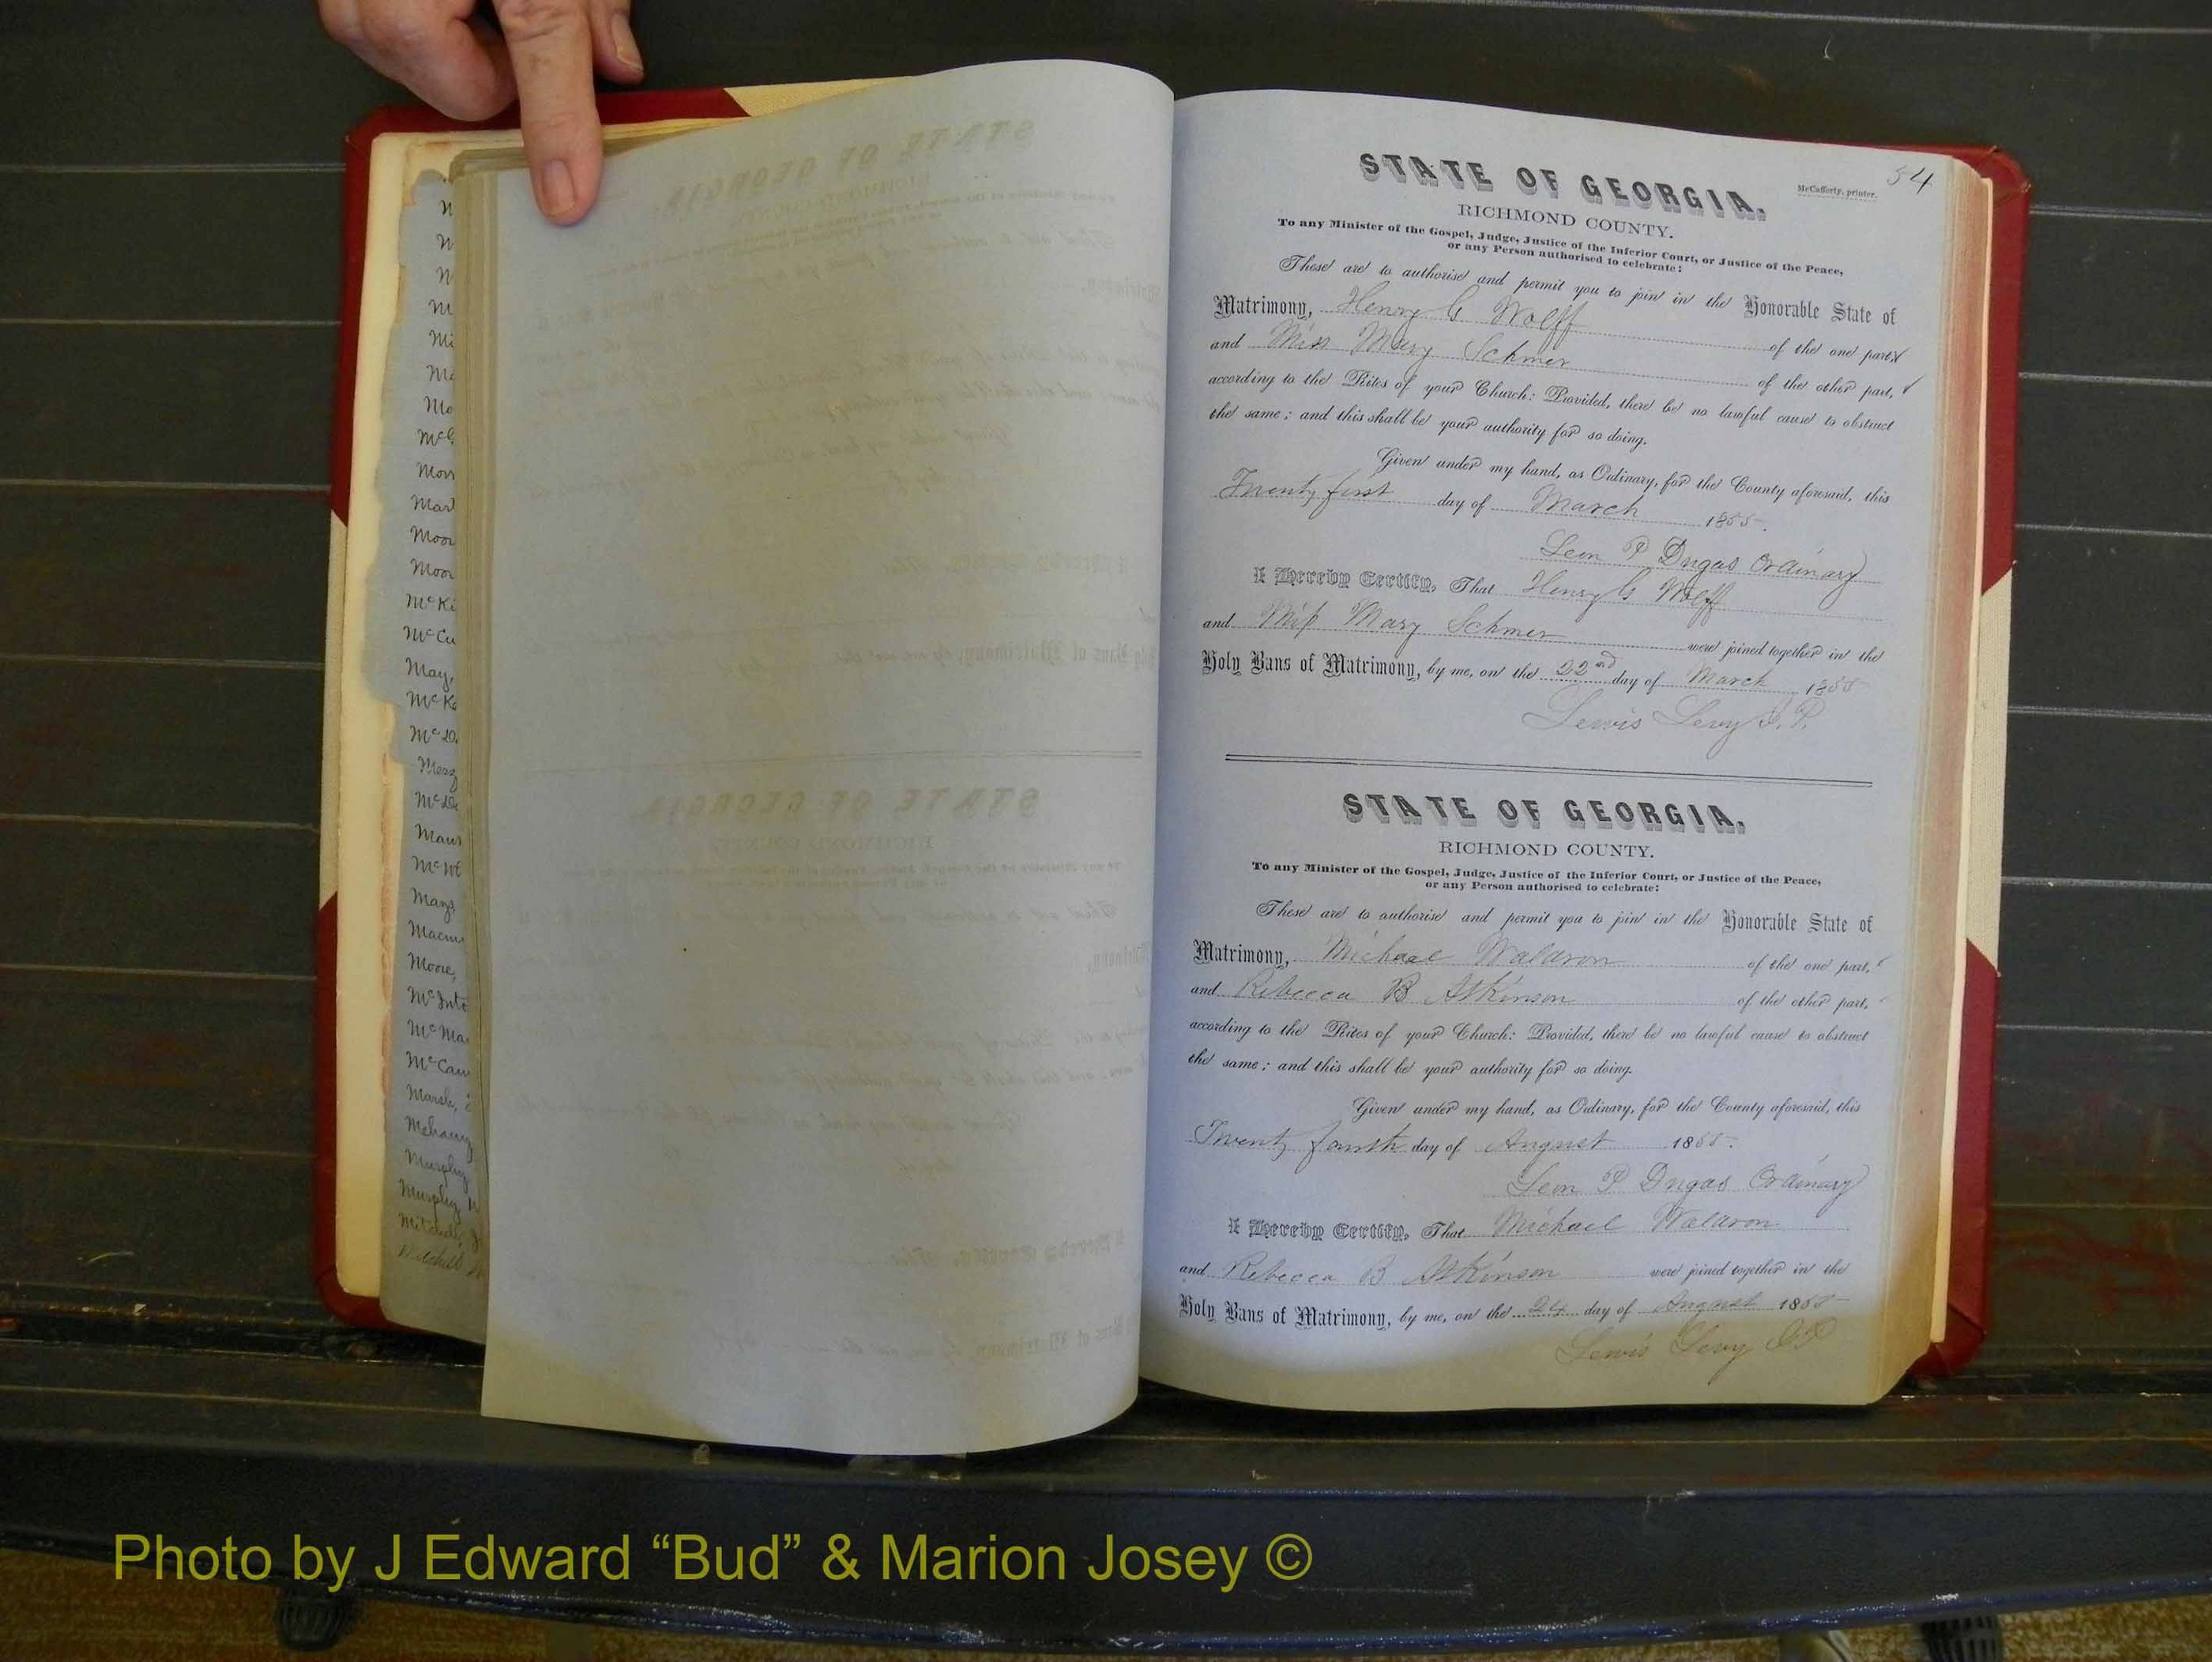 M
M
M
M
Mi
Mc
Mo
McC
Morr
Mart
Moor
Moor
McKi
McCu
May,
McKe
McD
Merz
McDe
Maur
McWt
Mays,
Macmu
Moore,
McInto
McMa
McCan
Marsh,
Mehany
Murphy
Murphy, W
Mitchell, J
Mitchell W
54
McCafferty, printer.
STATE OF GEORGIA.
RICHMOND COUNTY.
To any Minister of the Gospel, Judge, Justice of the Inferior Court, or Justice of the Peace,
or any Person authorised to celebrate:
These are to authorise and permit you to join in the Honorable State of
Matrimony, Henry G Wolff of the one part,
and Miss Mary Schmer of the other part,
according to the Rites of your Church: Provided, there be no lawful cause to obstruct
the same; and this shall be your authority for so doing.
Given under my hand, as Ordinary, for the County aforesaid, this
Twenty first day of March 1855.
Leon P Dugas Ordinary
I Hereby Certify, That Henry G Wolff
and Miss Mary Schmer were joined together in the
Holy Bans of Matrimony, by me, on the 22nd day of March 1855
Lewis Levy J.P.
STATE OF GEORGIA.
RICHMOND COUNTY.
To any Minister of the Gospel, Judge, Justice of the Inferior Court, or Justice of the Peace,
or any Person authorised to celebrate:
These are to authorise and permit you to join in the Honorable State of
Matrimony, Michael Waldron of the one part,
and Rebecca B Atkinson of the other part,
according to the Rites of your Church: Provided, there be no lawful cause to obstruct
the same; and this shall be your authority for so doing.
Given under my hand, as Ordinary, for the County aforesaid, this
Twenty fourth day of August 1855.
Leon P Dugas Ordinary
I Hereby Certify, That Michael Waldron
and Rebecca B Atkinson were joined together in the
Holy Bans of Matrimony, by me, on the 24 day of August 1855
Lewis Levy JP
Photo by J Edward “Bud” & Marion Josey ©